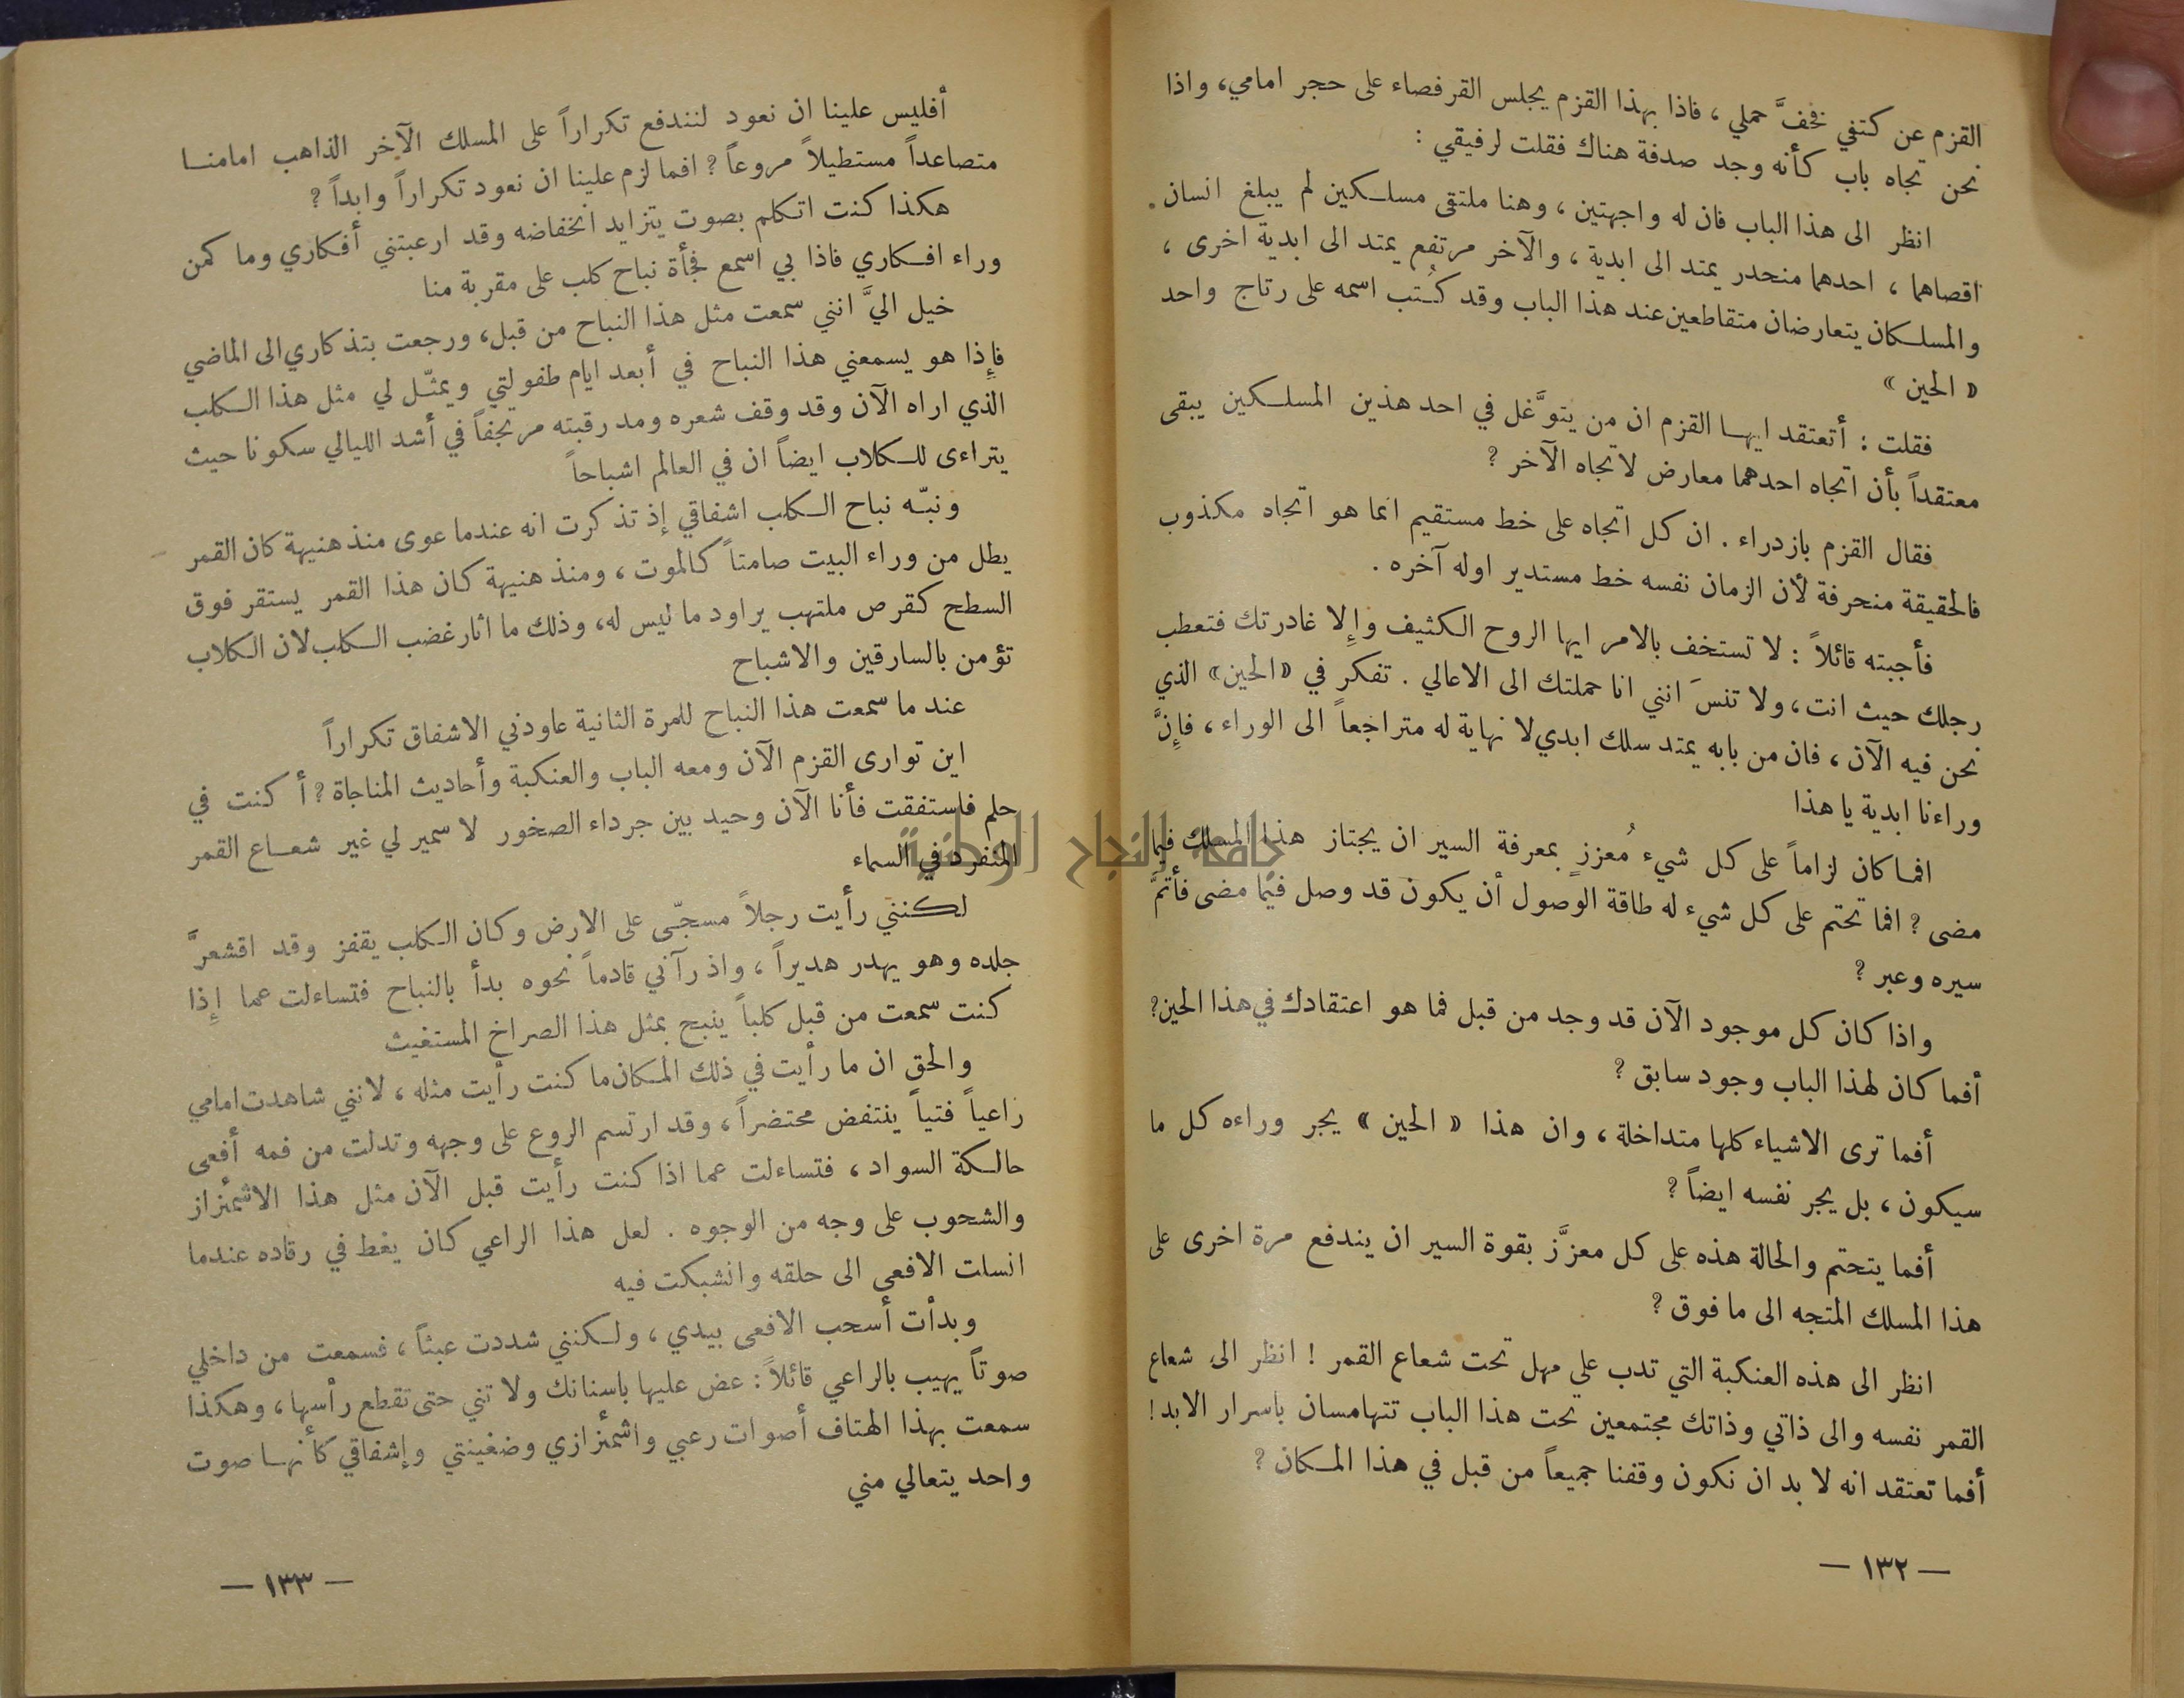 القزم عن كتفي فخفَّ حملي ، فاذا بهذا القزم يجلس القرفصاء على حجر امامي، واذا
نحن تجاه باب كأنه وجد صدفة هناك فقلت لرفيقي :
انظر الى هذا الباب فان له واجهتين ، وهنا ملتقى مسلكين لم يبلغ انسان
اقصاهما ، احدهما منحدر يمتد الى ابدية ، والآخر مرتفع يمتد الى ابدية اخرى ،
والمسلكان يتعارضان متقاطعين عند هذا الباب وقد كُتب اسمه على رتاج واحد
« الحين »
فقلت : أتعتقد ايها القزم ان من يتوَّغل في احد هذين المسلكين يبقى
معتقداً بأن اتجاه احدهما معارض لاتجاه الآخر ؟
فقال القزم بازدراء . ان كل اتجاه على خط مستقيم انما هو اتجاه مكذوب
فالحقيقة منحرفة لأن الزمان نفسه خط مستدير اوله آخره .
فأجبته قائلاً : لا تستخف بالامر ايها الروح الكثيف وإلا غادرتك فتعطب
رجلك حيث انت ، ولا تنسَ انني انا حملتك الى الاعالي . تفكر في «الحين» الذي
نحن فيه الآن ، فان من بابه يمتد سلك ابدي لا نهاية له متراجعاً الى الوراء ، فإنَّ
وراءنا ابدية يا هذا
افما كان لزاماً على كل شيء مُعزز بمعرفة السير ان يجتاز هذا المسلك فيما
مضى ؟ افما تحتم على كل شيء له طاقة الوصول أن يكون قد وصل فيما مضى فأتمَّ
سيره وعبر ؟
واذا كان كل موجود الآن قد وجد من قبل فما هو اعتقادك في هذا الحين؟
أفما كان لهذا الباب وجود سابق ؟
أفما ترى الاشياء كلها متداخلة ، وان هذا « الحين » يجر وراءه كل ما
سيكون ، بل يجر نفسه ايضاً ؟
أفما يتحتم والحالة هذه على كل معزَّز بقوة السير ان يندفع مرة اخرى على
هذا المسلك المتجه الى ما فوق ؟
انظر الى هذه العنكبة التي تدب على مهل تحت شعاع القمر ! انظر الى شعاع
القمر نفسه والى ذاتي وذاتك مجتمعين تحت هذا الباب تتهامسان باسرار الابد !
أفما تعتقد انه لا بد ان نكون وقفنا جميعاً من قبل في هذا المكان ؟
— ١٣٢ —
أفليس علينا ان نعود لنندفع تكراراً على المسلك الآخر الذاهب امامنا
متصاعداً مستطيلاً مروعاً ؟ افما لزم علينا ان نعود تكراراً وابداً ؟
هكذا كنت اتكلم بصوت يتزايد انخفاضه وقد ارعبتني أفكاري وما كمن
وراء افكاري فاذا بي اسمع فجأة نباح كلب على مقربة منا
خيل اليَّ انني سمعت مثل هذا النباح من قبل، ورجعت بتذكاري الى الماضي
فإذا هو يسمعني هذا النباح في أبعد ايام طفولتي ويمثّل لي مثل هذا الكلب
الذي اراه الآن وقد وقف شعره ومد رقبته مرتجفاً في أشد الليالي سكونا حيث
يتراءى للكلاب ايضاً ان في العالم اشباحاً
ونبّه نباح الكلب اشفاقي إذ تذكرت انه عندما عوى منذ هنيهة كان القمر
يطل من وراء البيت صامتاً كالموت ، ومنذ هنيهة كان هذا القمر يستقر فوق
السطح كقرص ملتهب يراود ما ليس له، وذلك ما اثار غضب الكلب لان الكلاب
تؤمن بالسارقين والاشباح
عند ما سمعت هذا النباح للمرة الثانية عاودني الاشفاق تكراراً
اين توارى القزم الآن ومعه الباب والعنكبة وأحاديث المناجاة ؟ أكنت في
حلم فاستفقت فأنا الآن وحيد بين جرداء الصخور لا سمير لي غير شعاع القمر
المنفرد في السماء
لكنني رأيت رجلاً مسجّى على الارض وكان الكلب يقفز وقد اقشعرَّ
جلده وهو يهدر هديراً ، واذ رآني قادماً نحوه بدأ بالنباح فتساءلت عما إذا
كنت سمعت من قبل كلباً ينبح بمثل هذا الصراخ المستغيث
والحق ان ما رأيت في ذلك المكان ما كنت رأيت مثله ، لانني شاهدت امامي
راعياً فتياً ينتفض محتضراً ، وقد ارتسم الروع على وجهه وتدلت من فمه أفعى
حالكة السواد ، فتساءلت عما اذا كنت رأيت قبل الآن مثل هذا الاشمئزاز
والشحوب على وجه من الوجوه . لعل هذا الراعي كان يغط في رقاده عندما
انسلت الافعى الى حلقه وانشبكت فيه
وبدأت أسحب الافعى بيدي ، ولكنني شددت عبثاً ، فسمعت من داخلي
صوتاً يهيب بالراعي قائلاً : عض عليها باسنانك ولا تني حتى تقطع رأسها ، وهكذا
سمعت بهذا الهتاف أصوات رعبي واشمئزازي وضغينتي وإشفاقي كأنها صوت
واحد يتعالى مني
— ١٣٣ —
جامعة النجاح الوطنية